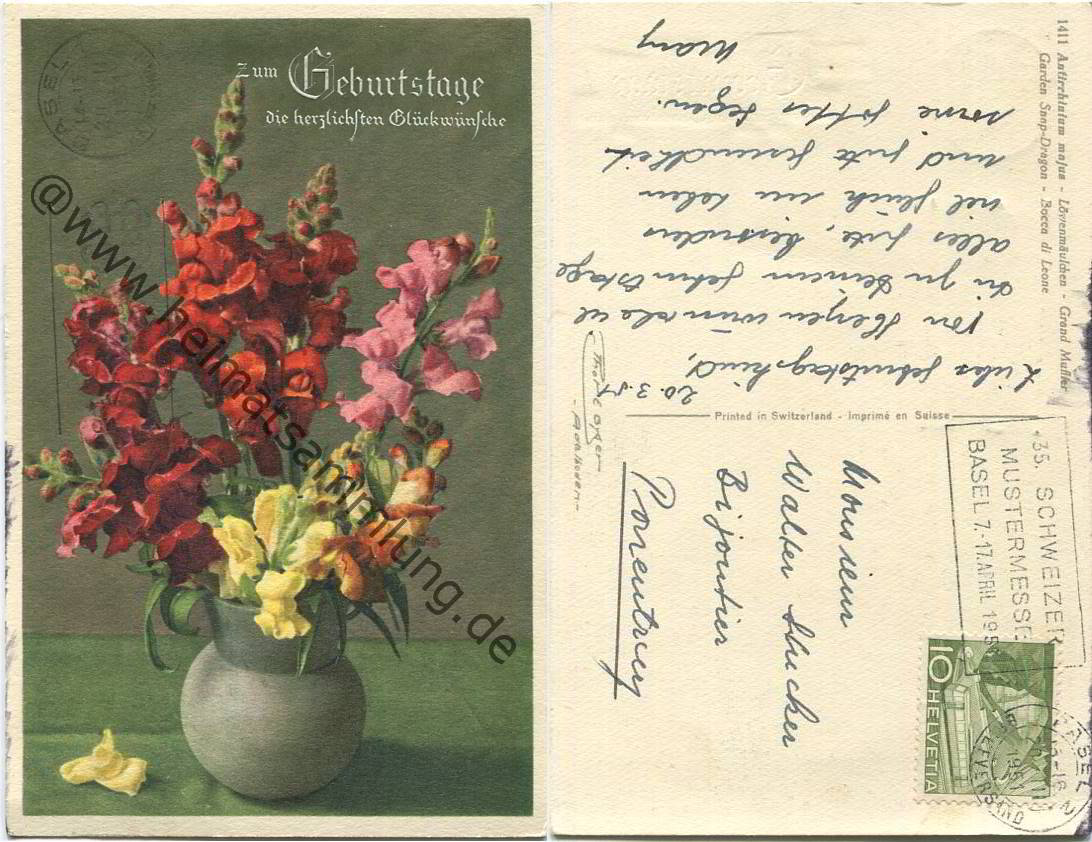 Zum Geburtstage
die herzlichsten Glückwünsche
@www.heimatsammlung.de
1411 Antirrhinum majus - Löwenmäulchen - Grand Muflier
Garden Snap-Dragon - Bocca di Leone
20.3.51
Liebes Geburtstagskind,
Von Herzen wünsche ich
dir zu deinem Geburtstage
alles gute, besonders
viel Glück im Leben
und gute Gesundheit
sowie Gottes Segen.
Mary
Printed in Switzerland - Imprimé en Suisse
Adelboden
Monsieur
Walter
Bijoutier
Porrentruy
35. SCHWEIZER
MUSTERMESSE
BASEL 7.-17. APRIL 1951
10
HELVETIA
BASEL 2
1951
BRIEFVERSAND
BASEL